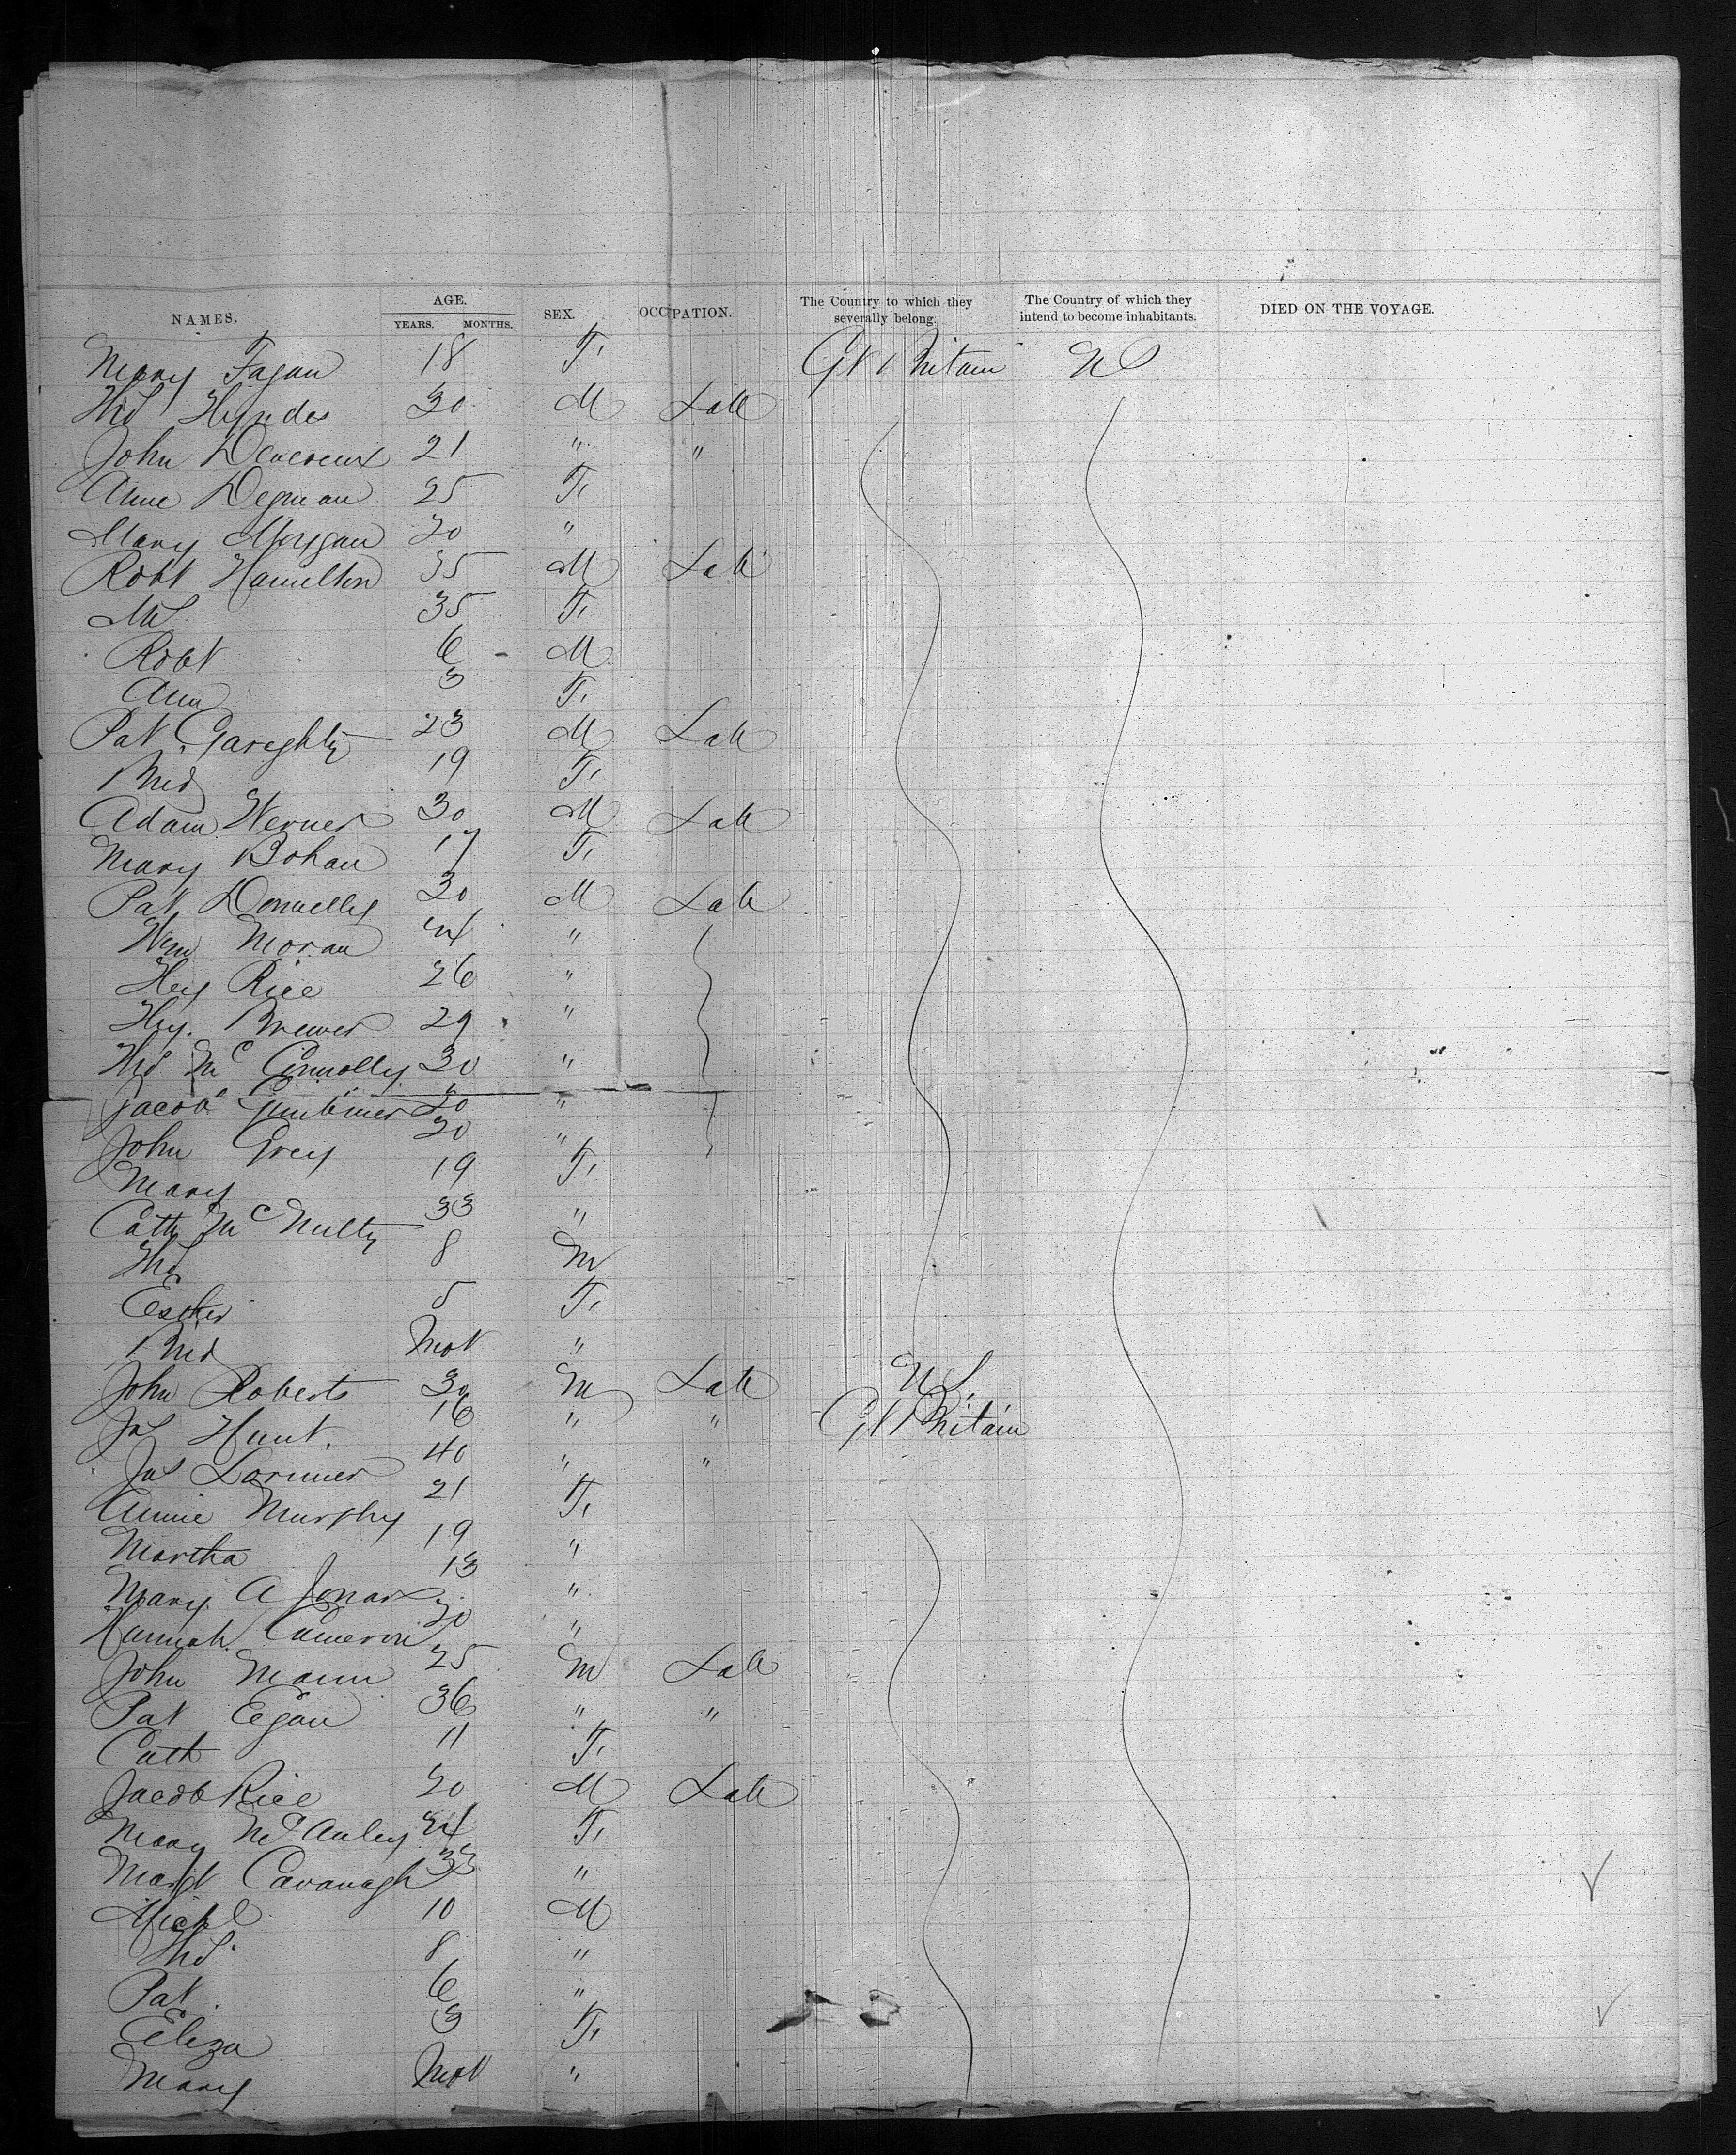 NAMES. AGE. YEARS. MONTHS. SEX. OCCUPATION. The Country to which they severally belong. The Country of which they intend to become inhabitants. DIED ON THE VOYAGE.
Mary Fagan 18 F. Gt Britain US
Ths Hyndes 30 M Lab
John Devereux 21 " "
Anne Degnan 25 F.
Mary Morgan 20 "
Robt Hamilton 35 M Lab
Ms 35 F.
Robt 6 M
Ann 3 F.
Pat Gareghty 23 M Lab
Brid 19 F.
Adam Werner 30 M Lab
Mary Bohan 17 F.
Pat Donnelly 30 M Lab
Wm Moran 24 "
Hy Rice 26 "
Hy. Brewer 29 "
Ths Mc Connolly 30 "
Jacob 20 "
John Grey 20 "
Mary 19 F.
Cath Mc Nulty 33 "
Ths 8 M
Esther 5 F.
Brid Inft "
John Roberts 30 M Lab US.
Js Hunt. 16 " " Gt Britain
Jas Lorimer 40 " "
Annie Murphy 21 F.
Martha 19 "
Mary A 13 "
Hannah Cameron 20 "
John Mann 25 M Lab
Pat Egan 36 " "
Cath 11 F.
Jacob Rice 20 M Lab
Mary McAuley 24 F.
Margt Cavanagh 33 "
Michl 10 M
Ths 8 "
Pat 6 "
Eliza 3 F.
Mary Inft "